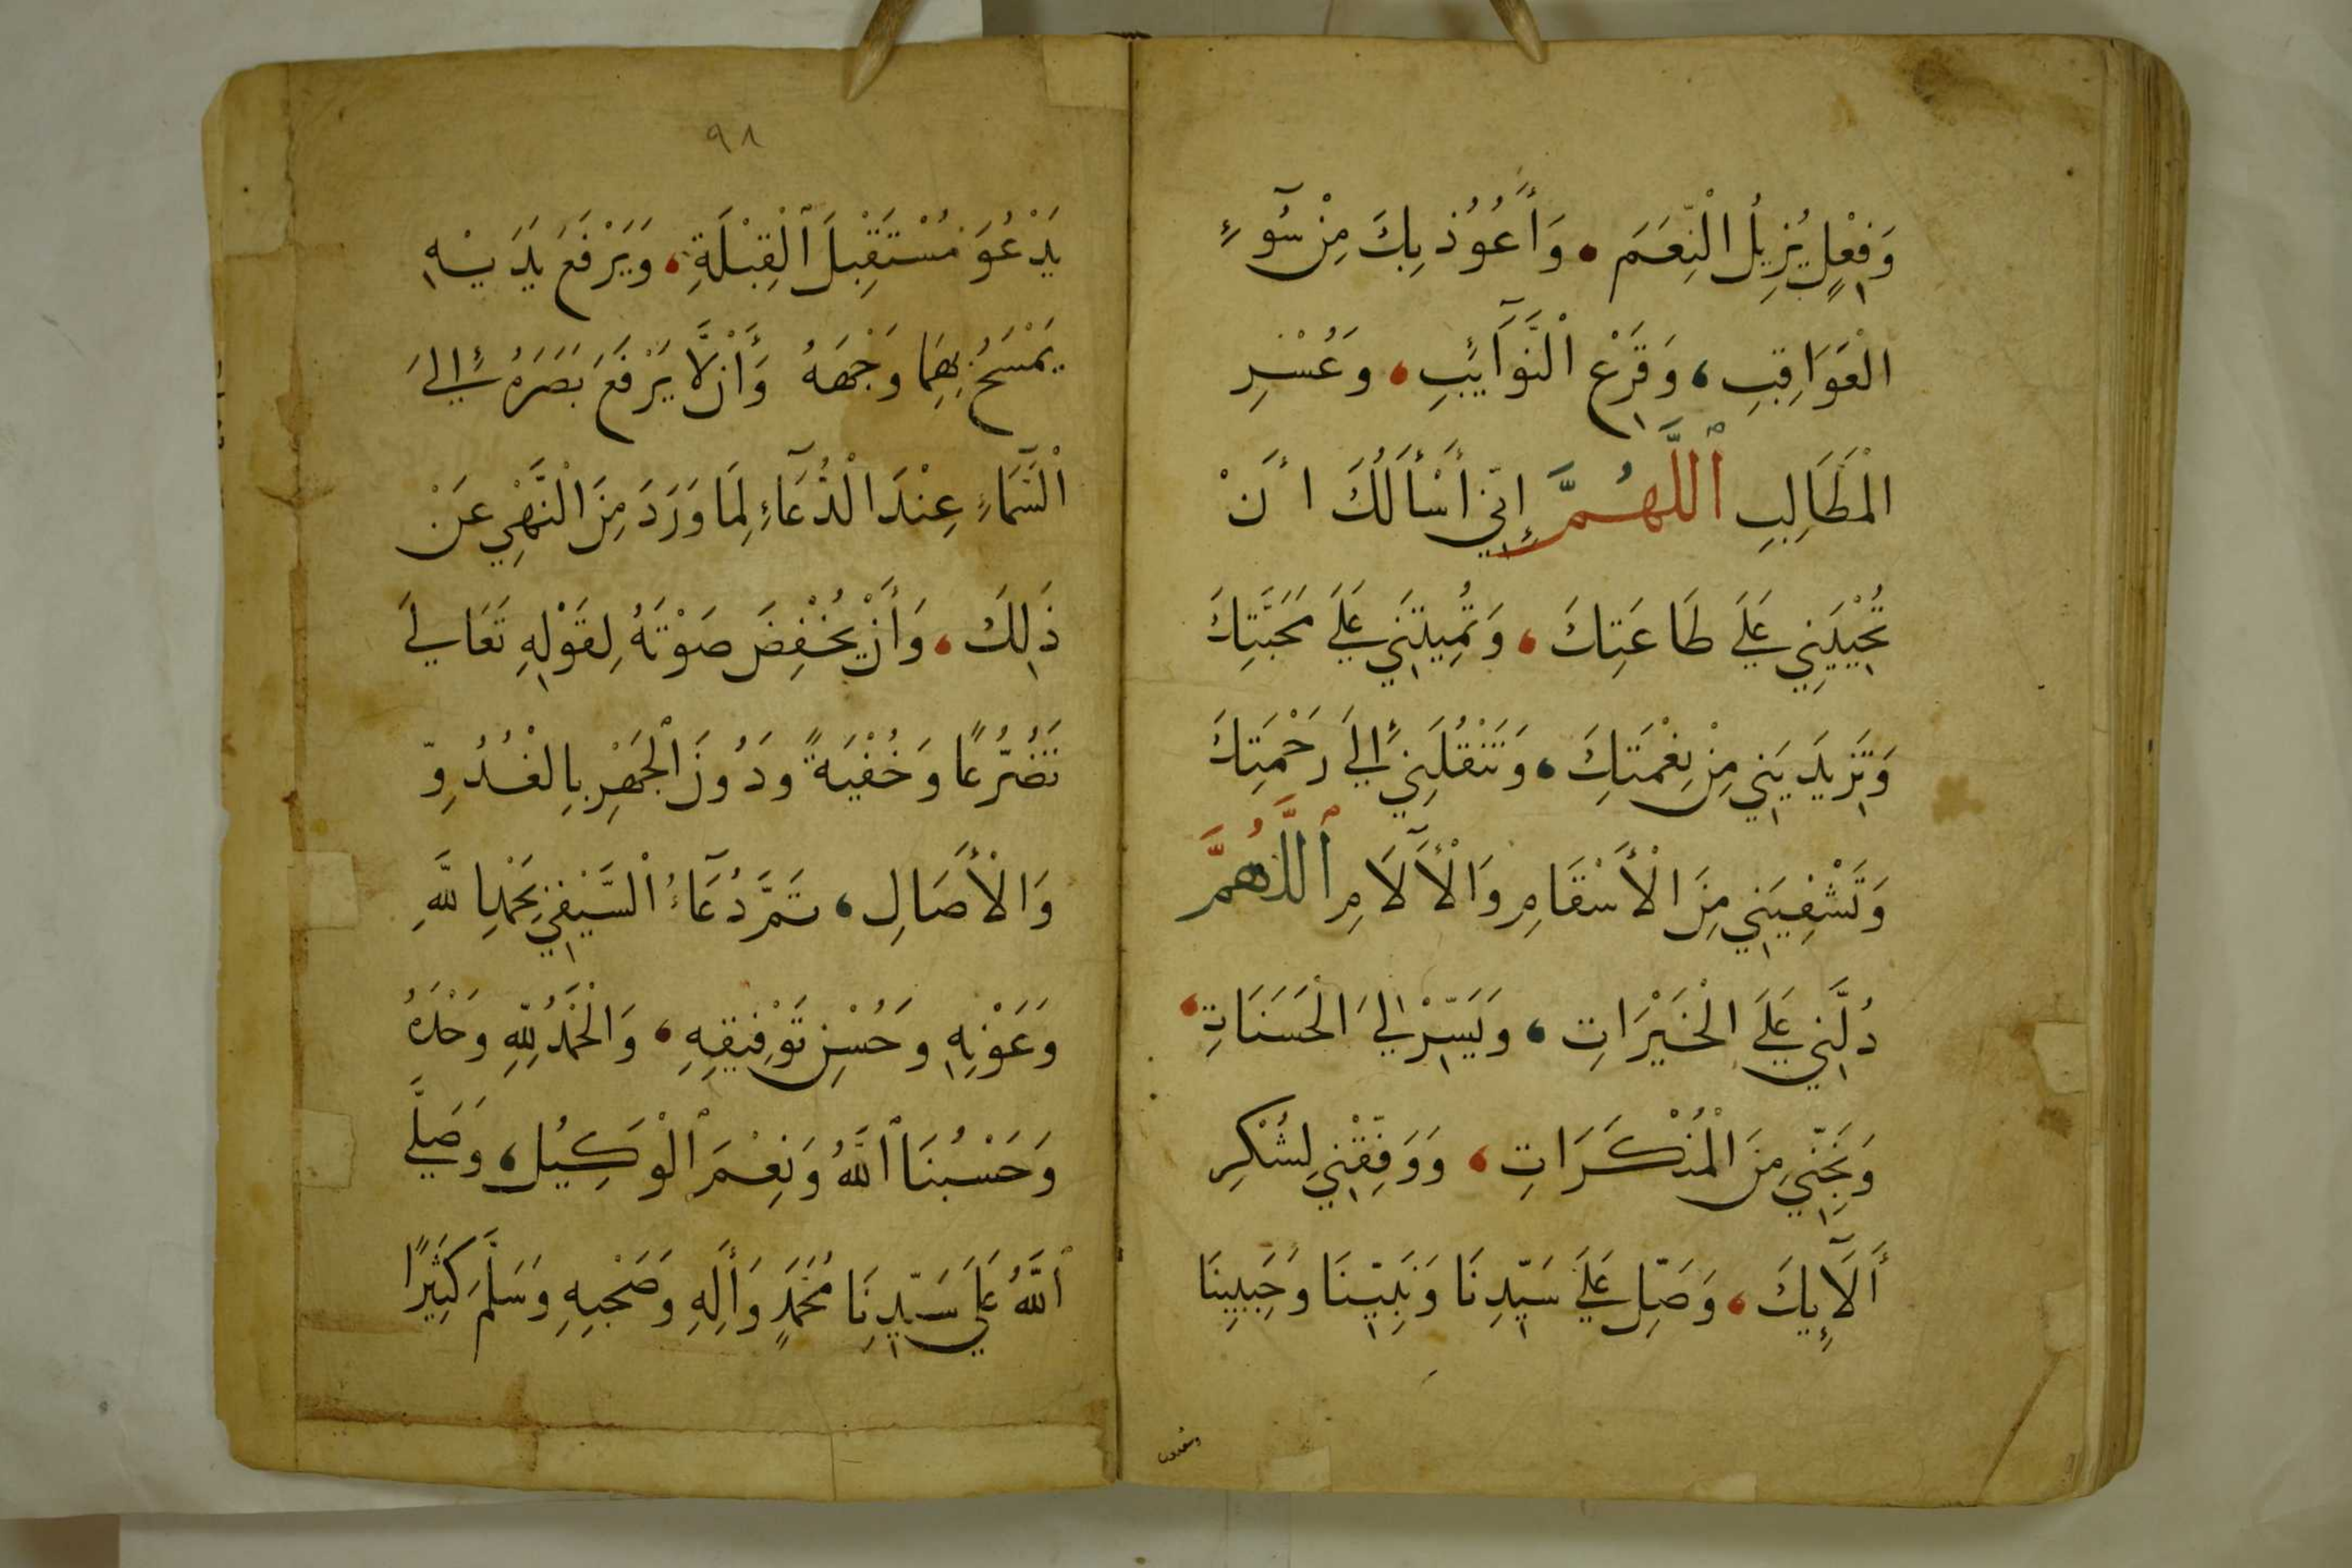 وَفِعْلٍ يُزِيلُ الْنِّعَمَ، وَأَعُوُذ بِكَ مِنْ سُوٓءِ
الْعَوَاقِبِ، وَقَرْعِ الْنَّوَآئِبِ، وَعُسْرِ
الْمَطَالِبِ ٱللَّهُمَّ إِنِّي أَسْأَلُكَ أَنْ
تُحْيِيَنِي عَلَى طَاعَتِكَ، وَتُمِيتَنِي عَلَى مَحَبَّتِكَ
وَتَزِيدَيَنِي مِنْ نِعْمَتِكَ، وَتَنْقُلَنِي إِلَى رَحْمَتِكَ
وَتَشْفِيَنِي مِنَ الْأَسْقَامِ وَالْأَلَآمِ ٱللَّهُمَّ
دُلَّنِي عَلَى الْخَيْرَاتِ، وَيَسِّرْ لِيَ الْحَسَنَاتِ،
وَنَجِّنِي مِنَ الْمُنْكَرَاتِ، وَوَفِّقْنِي لِشُكْرِ
أَلَآئِكَ، وَصَلِّ عَلَى سَيِّدِنَا وَنَبِيِّنَا وَحَبِيبِنَا
٩٨
يَدْعُوَ مُسْتَقْبِلَ ٱلْقِبْلَةِ، وَيَرْفَعَ يَدَيْهِ
يَمْسَحُ بِهِمَا وَجْهَهُ وَأَنْ لَّا يَرْفَعَ بَصَرَهُ إِلَى
الْسَّمَآءِ عِنْدَ الْدُّعَآءِ لِمَا وَرَدَ مِنَ الْنَّهْيِ عَنْ
ذَلِكَ، وَأَنْ يُخْفِضَ صَوْتَهُ لِقَوْلِهِ تَعَالَى
تَضَرُّعًا وَخُفْيَةً وَدُونَ ٱلْجَهْرِ بِالْغُدُوِّ
وَالْأَصَالِ، تَمَّ دُعَآءُ الْسَّيْفِي بِحَمْدِ اللَّهِ
وَعَوْنِهِ وَحُسْنِ تَوْفِيقِهِ، وَالْحَمْدُ لِلَّهِ وَحْدَهُ
وَحَسْبُنَا ٱللَّهُ وَنِعْمَ ٱلْوَكِيلُ، وَصَلَّى
ٱللَّهُ عَلَى سَيِّدِنَا مُحَمَّدٍ وَأَلِهِ وَصَحْبِهِ وَسَلَّمَ كَثِيْرًا